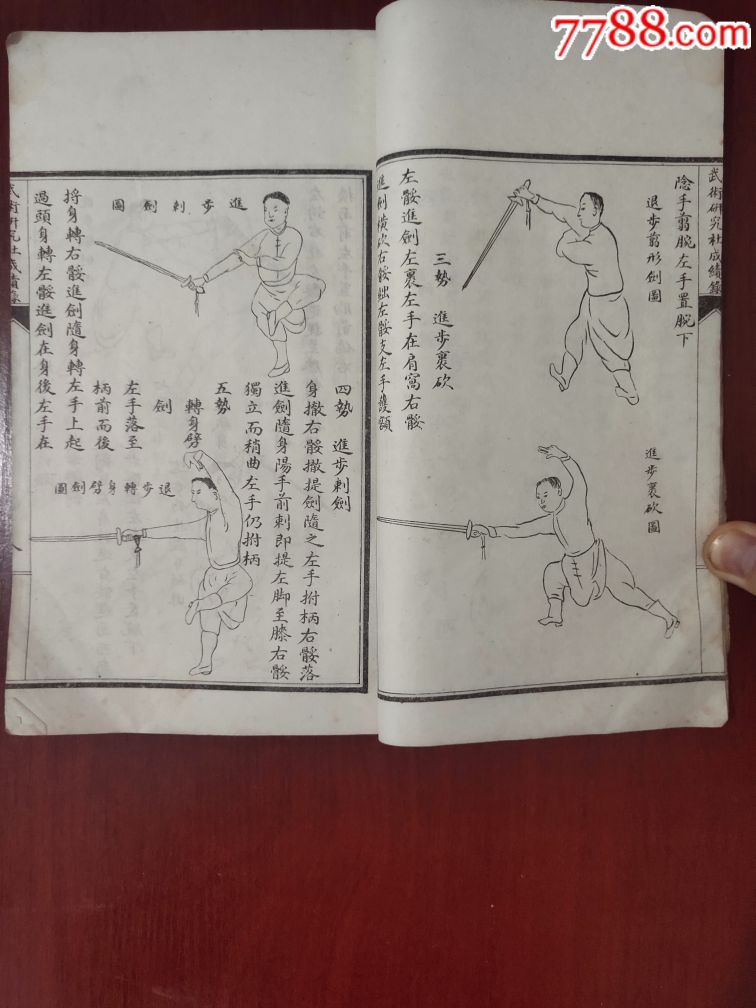 7788.com
武術研究社成績錄
陰手翦腕左手置腕下
退步翦形劍圖
進步裹砍圖
三勢 進步裹砍
左骽進劍左裹左手在肩窩右骽
進劍橫砍右骽絀左骽支左手護額
四勢 進步刺劍
身撤右骽撤提劍隨之左手拊柄右骽落
進劍隨身陽手前刺即提左脚至膝右骽
獨立而稍曲左手仍拊柄
進步刺劍圖
五勢
轉身劈
劍
左手落至
柄前而後
退步轉身劈劍圖
捋身轉右骽進劍隨身轉左手上起
過頭身轉左骽進劍在身後左手在
武術研究社成績錄